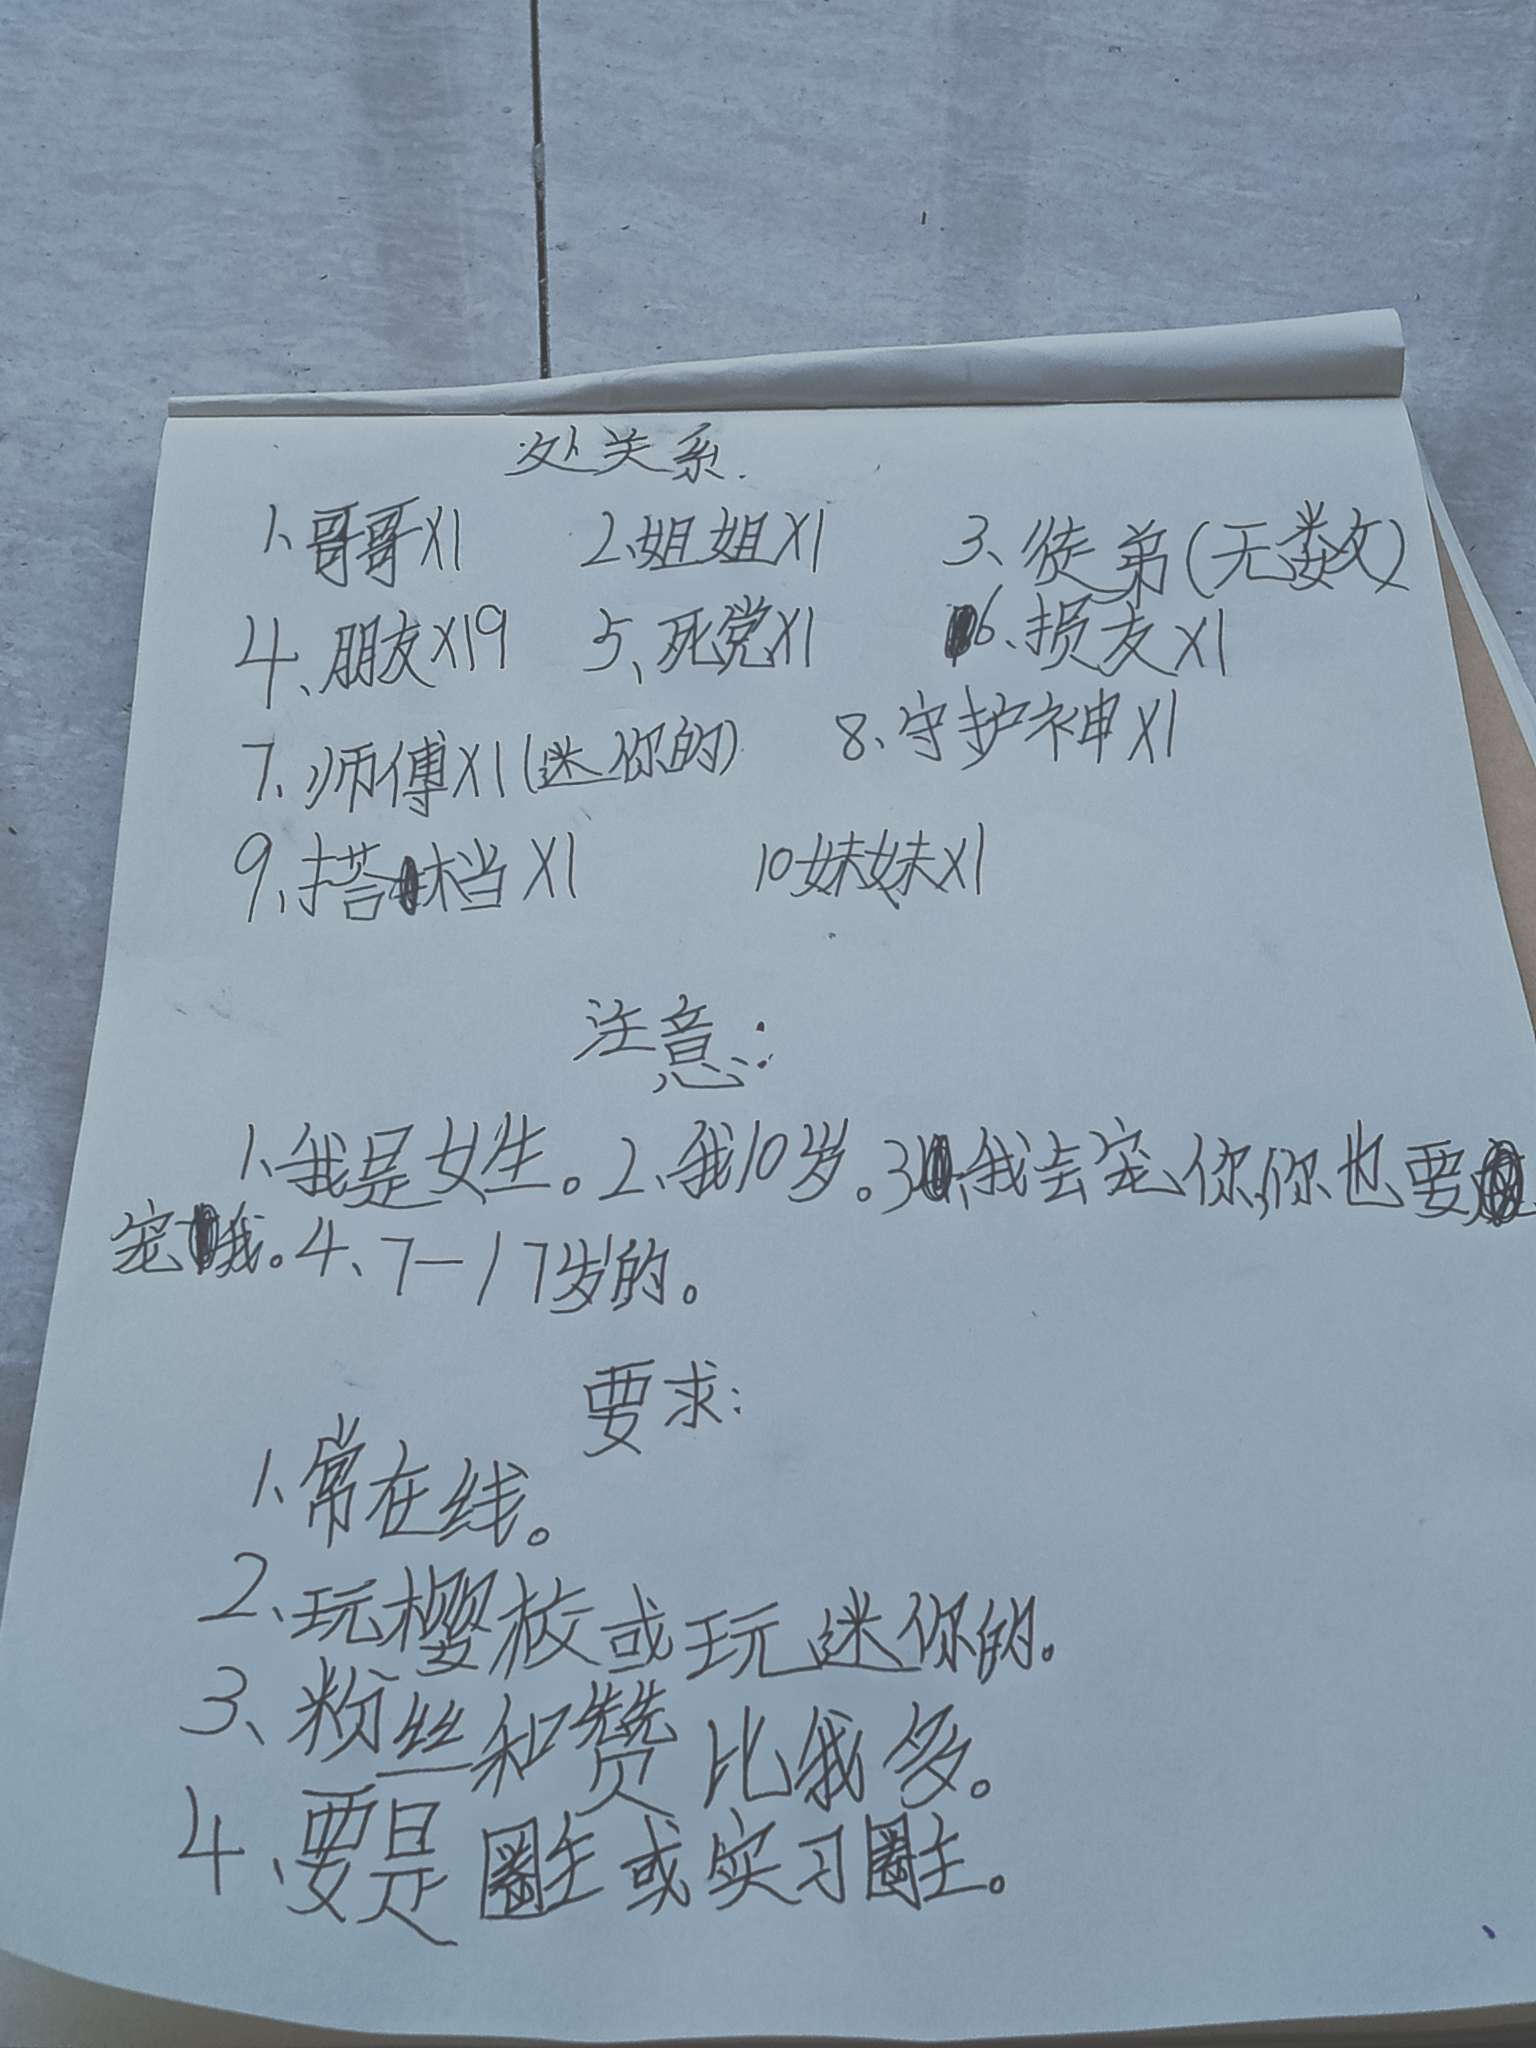 处关系.
1、哥哥X1 2、姐姐X1 3、徒弟(无数)
4、朋友X19 5、死党X1 6、损友X1
7、师傅X1(迷你的) 8、守护神X1
9、搭档X1 10妹妹X1
注意:
1、我是女生。2、我10岁。3、我去宠你,你也要
宠我。4、7—17岁的。
要求:
1、常在线。
2、玩樱校或玩迷你的。
3、粉丝和赞比我多。
4、要是圈主或实习圈主。